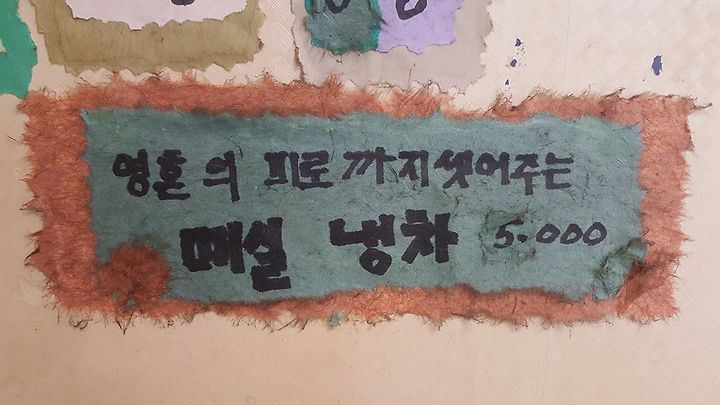 영혼의 피로까지 씻어주는
매실 냉차 5.000